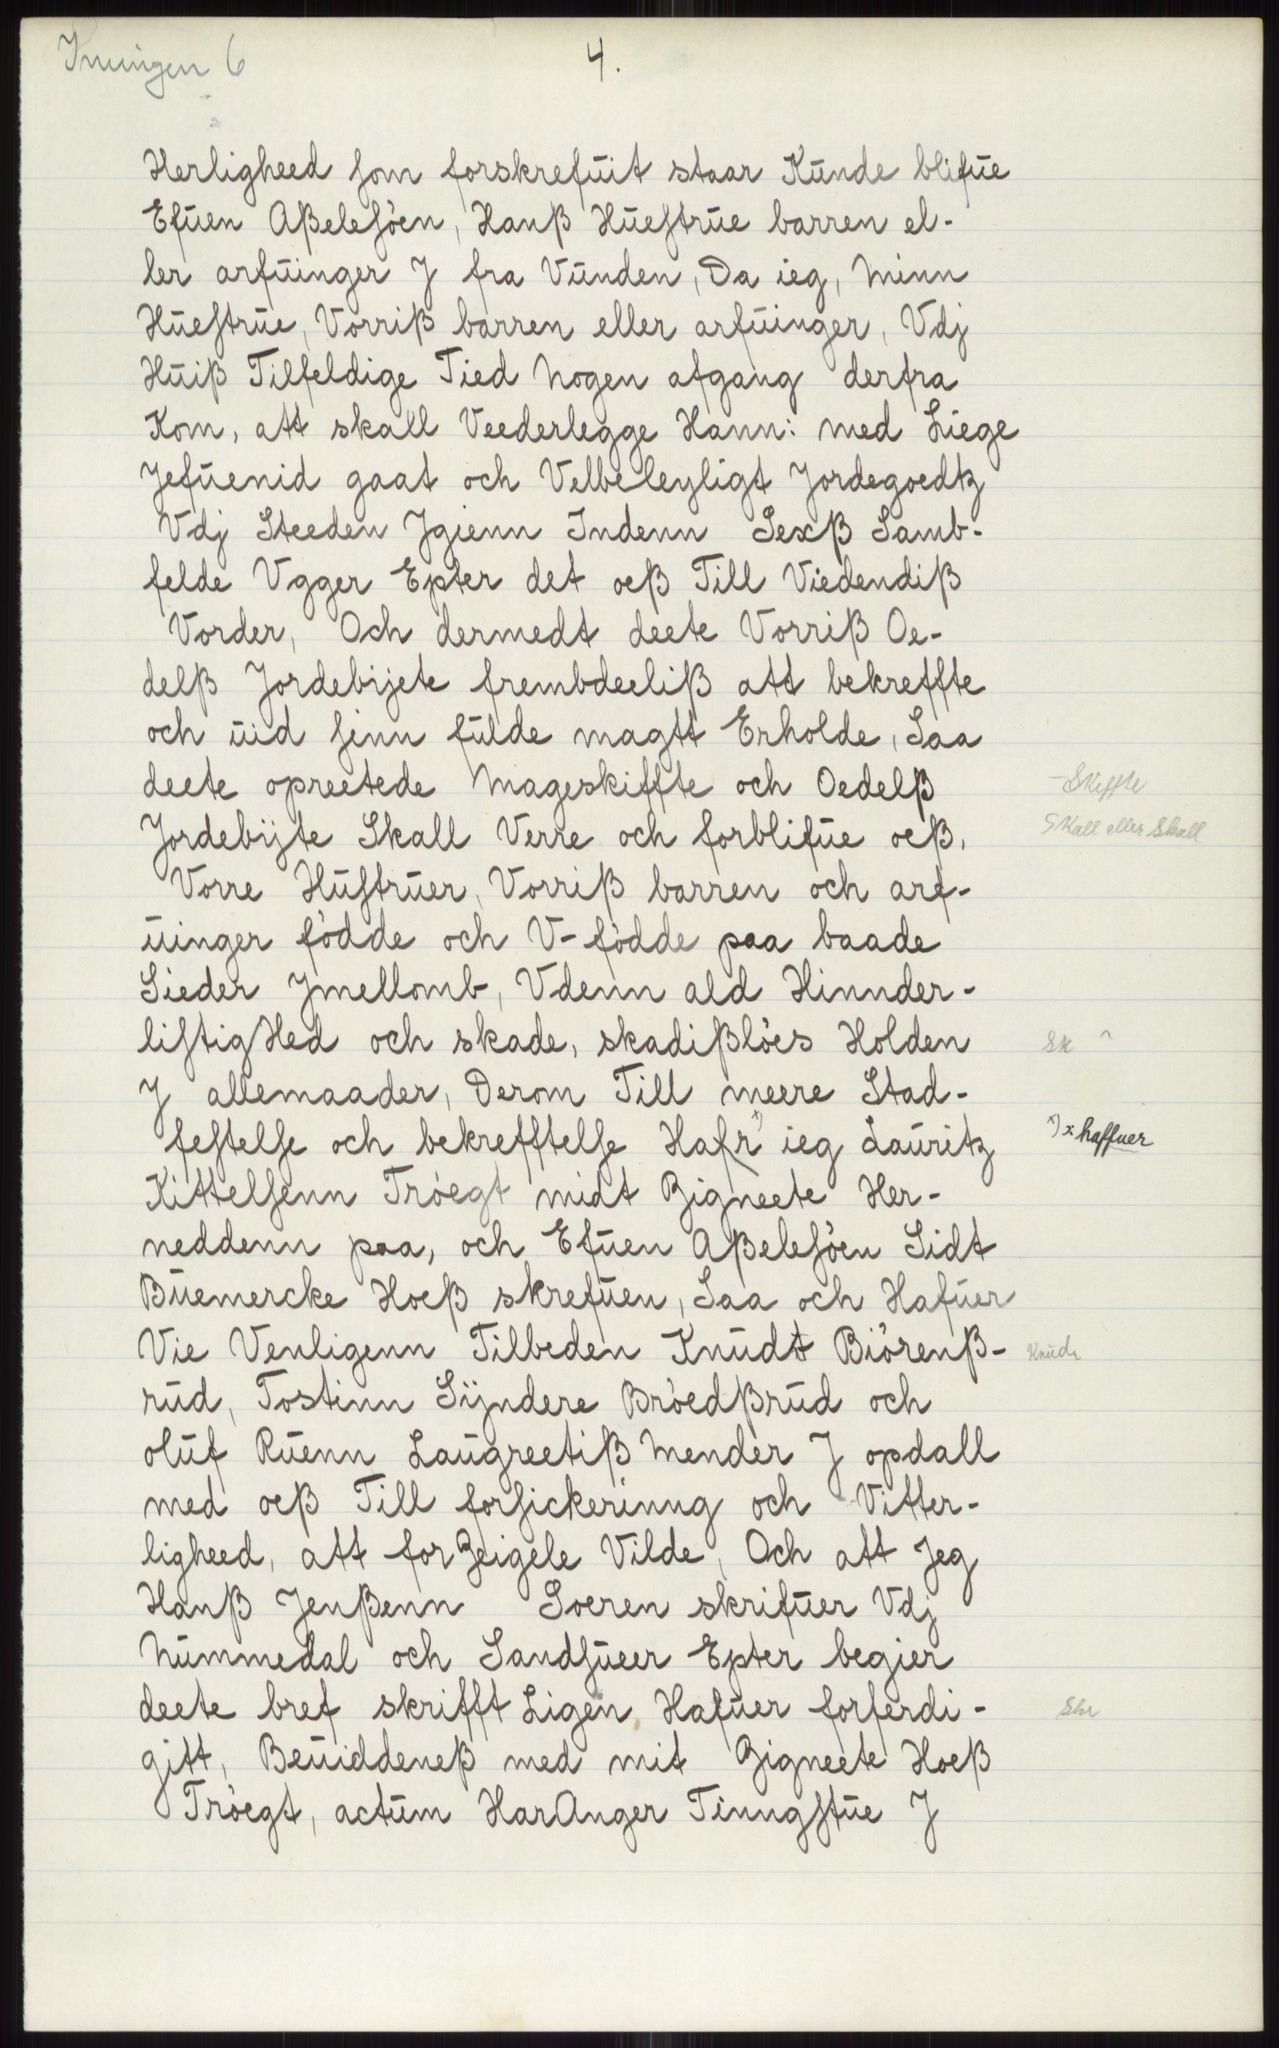 Iningen 6
4.
Herligheed som forskrefŭit staar Kŭnde blifŭe
Efŭen Aßelesöen, Hanß Hŭestrŭe barren el-
ler arfŭinger J fra Vŭnden, Da ieg, Minn
Hŭestrŭe, Vorriß barren eller arfŭinger, Vdj
Hŭiß Tilfeldige Tied Nogen afgang derfra
Kom, att skall Veederlegge Hann: med Liege
Jefŭenid gaat och Velbeleyligt Jordegoedtz
Vdj Steeden Jgienn Indenn Sexß Samb-
felde Vgger Epter det oeß Till Viedendiß
Vorder, Och dermedt deete Vorriß Oe-
delß Jordebÿete frembdeeliß att bekreffte
och ŭid sinn fŭlde magtt Erholde, Saa
deete opreetede Mageskiffte och Oedelß
- Skiffte
Jordebÿte Skall Verre och forblifŭe oeß,
Skall eller Skall
Vorre Hŭstrŭer, Vorriß barren och arf-
ŭinger födde och V-födde paa baade
Sieder Jmellomb, Vdenn ald Hinnder-
listigHed och skade, skadißlöes Holden
Sk ^
J allemaader, Derom Till meere Stad-
festelse och bekrefftelse Hafr x) ieg Laŭritz
x) : haffuer
Kittelsenn Tröegt midt Zigneete Her-
neddenn paa, och Efŭen Aßelesöen Sidt
Bŭemercke Hoeß skrefŭen, Saa och Hafŭer
Vie Venligenn Tilbeden Knŭdt Biörenß-
Knŭdt
rŭd, Tostinn Sÿndere Bröedßrŭd och
olŭf Rŭenn Laŭgreetiß Mender J opdall
med oeß Till forsickerinng och Vitter-
ligheed, att for Zeigele Vilde, Och att Jeg
Hanß Jenßenn Soeren skrifŭer Vdj
Nŭmmedal och Sandsŭeer Epter begier
deete bref skrifft Ligen, Hafŭer forferdi-
Skr
gitt, Beŭiddeneß med mit Zigneete Hoeß
Tröegt, actŭm HarAnger Tinngstŭe J